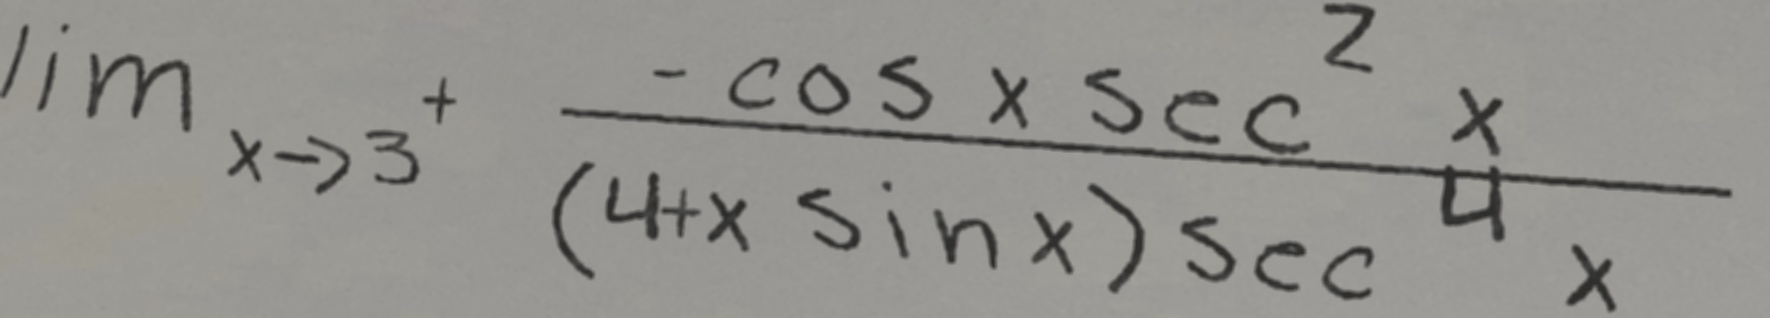 \lim_{x \to 3^+} \frac{-\cos x \sec^2 x}{(4+x \sin x) \sec^4 x}